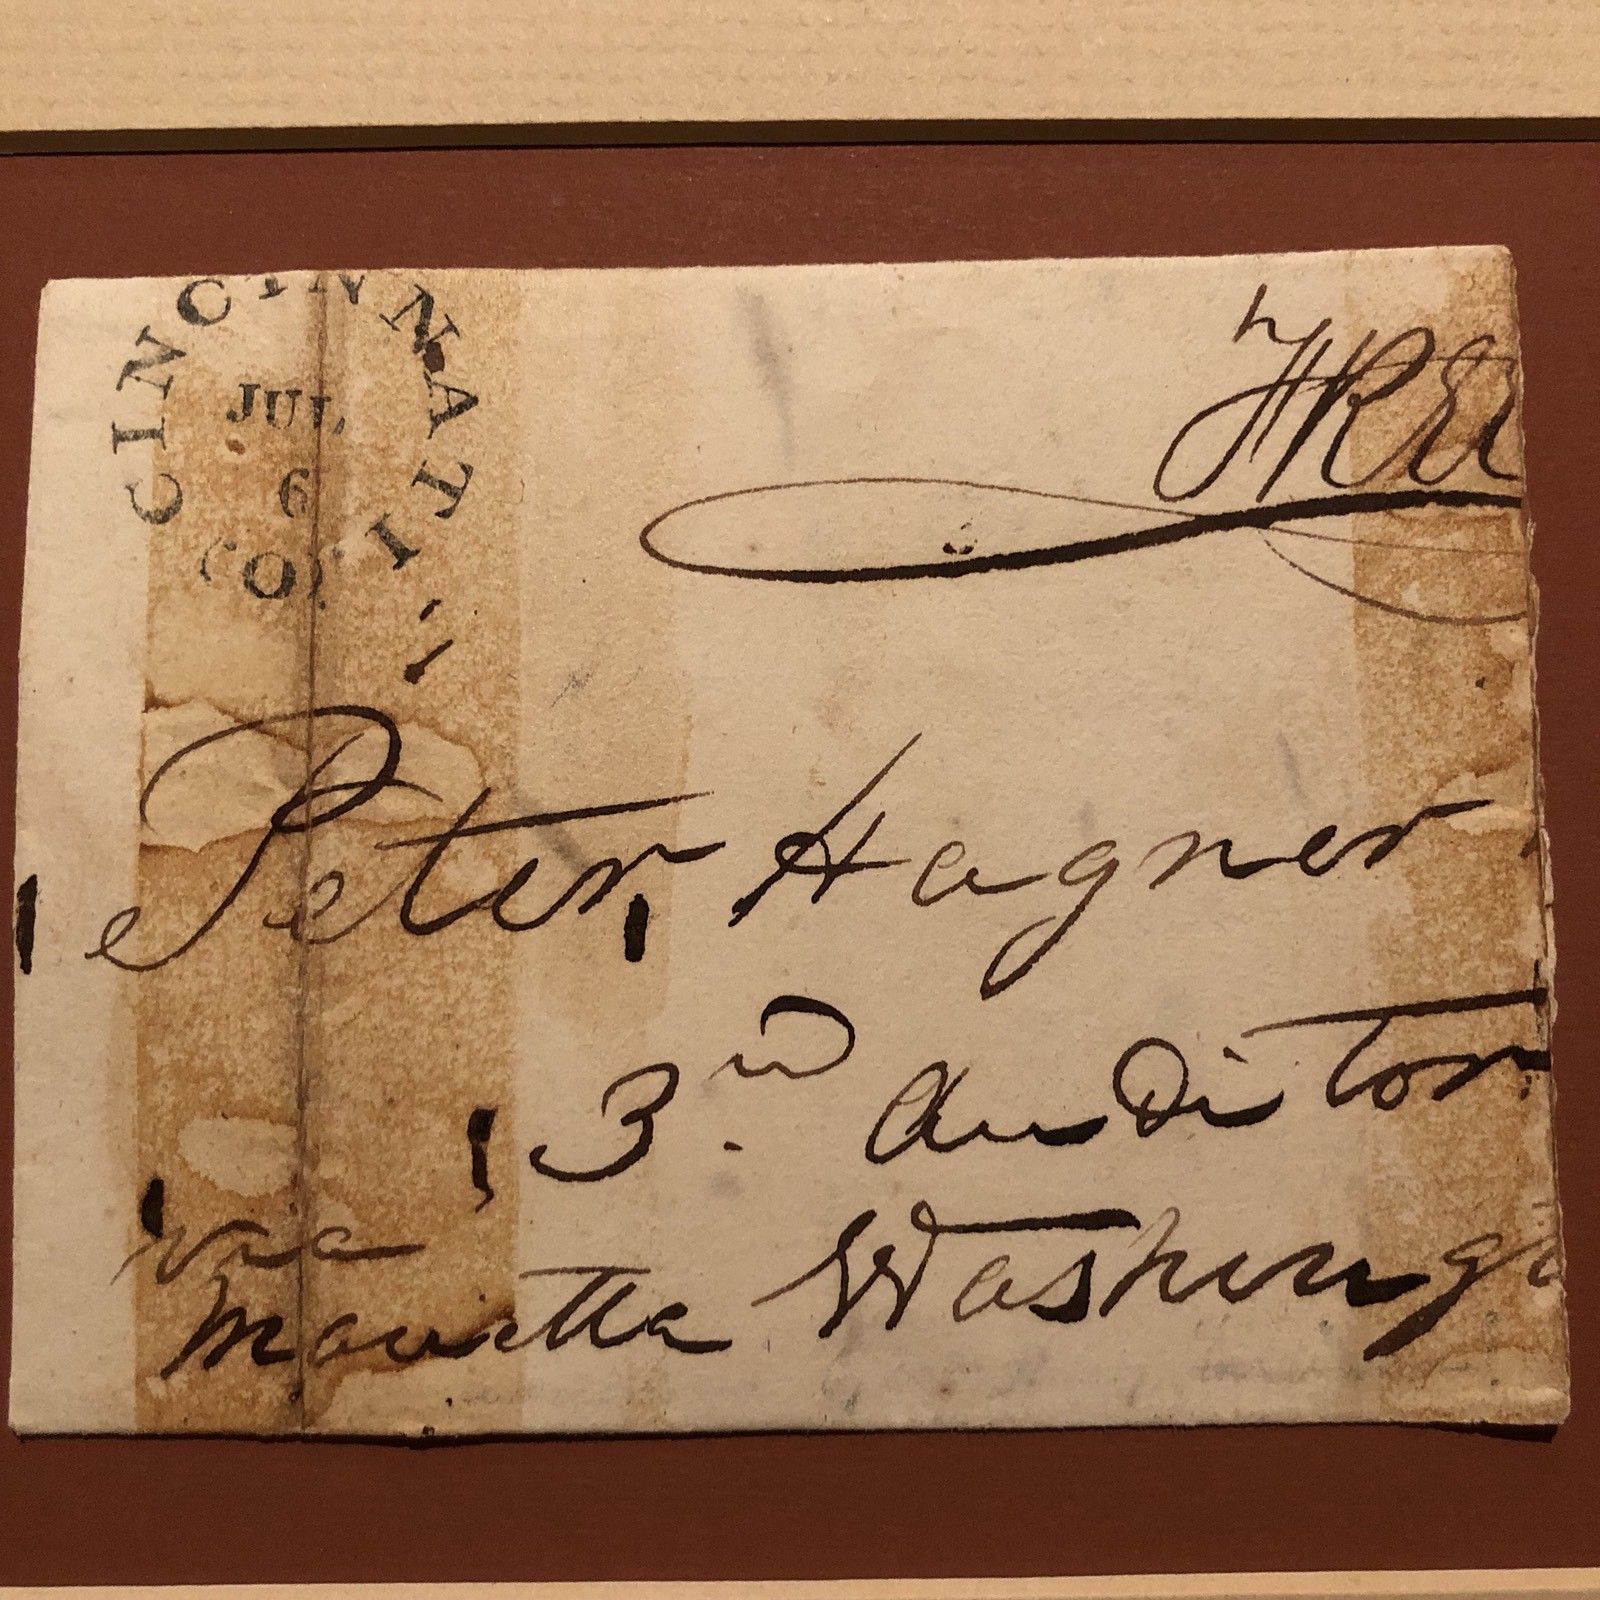 CINCINNATI
JUL
6
FREE
Peter Hagner
3rd Auditor
via
Marietta Washingt